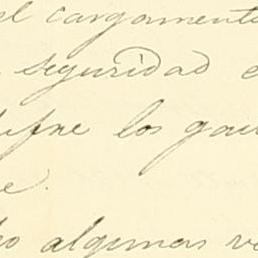 el cargamento
seguridad e
los gau
e.
algunas ve